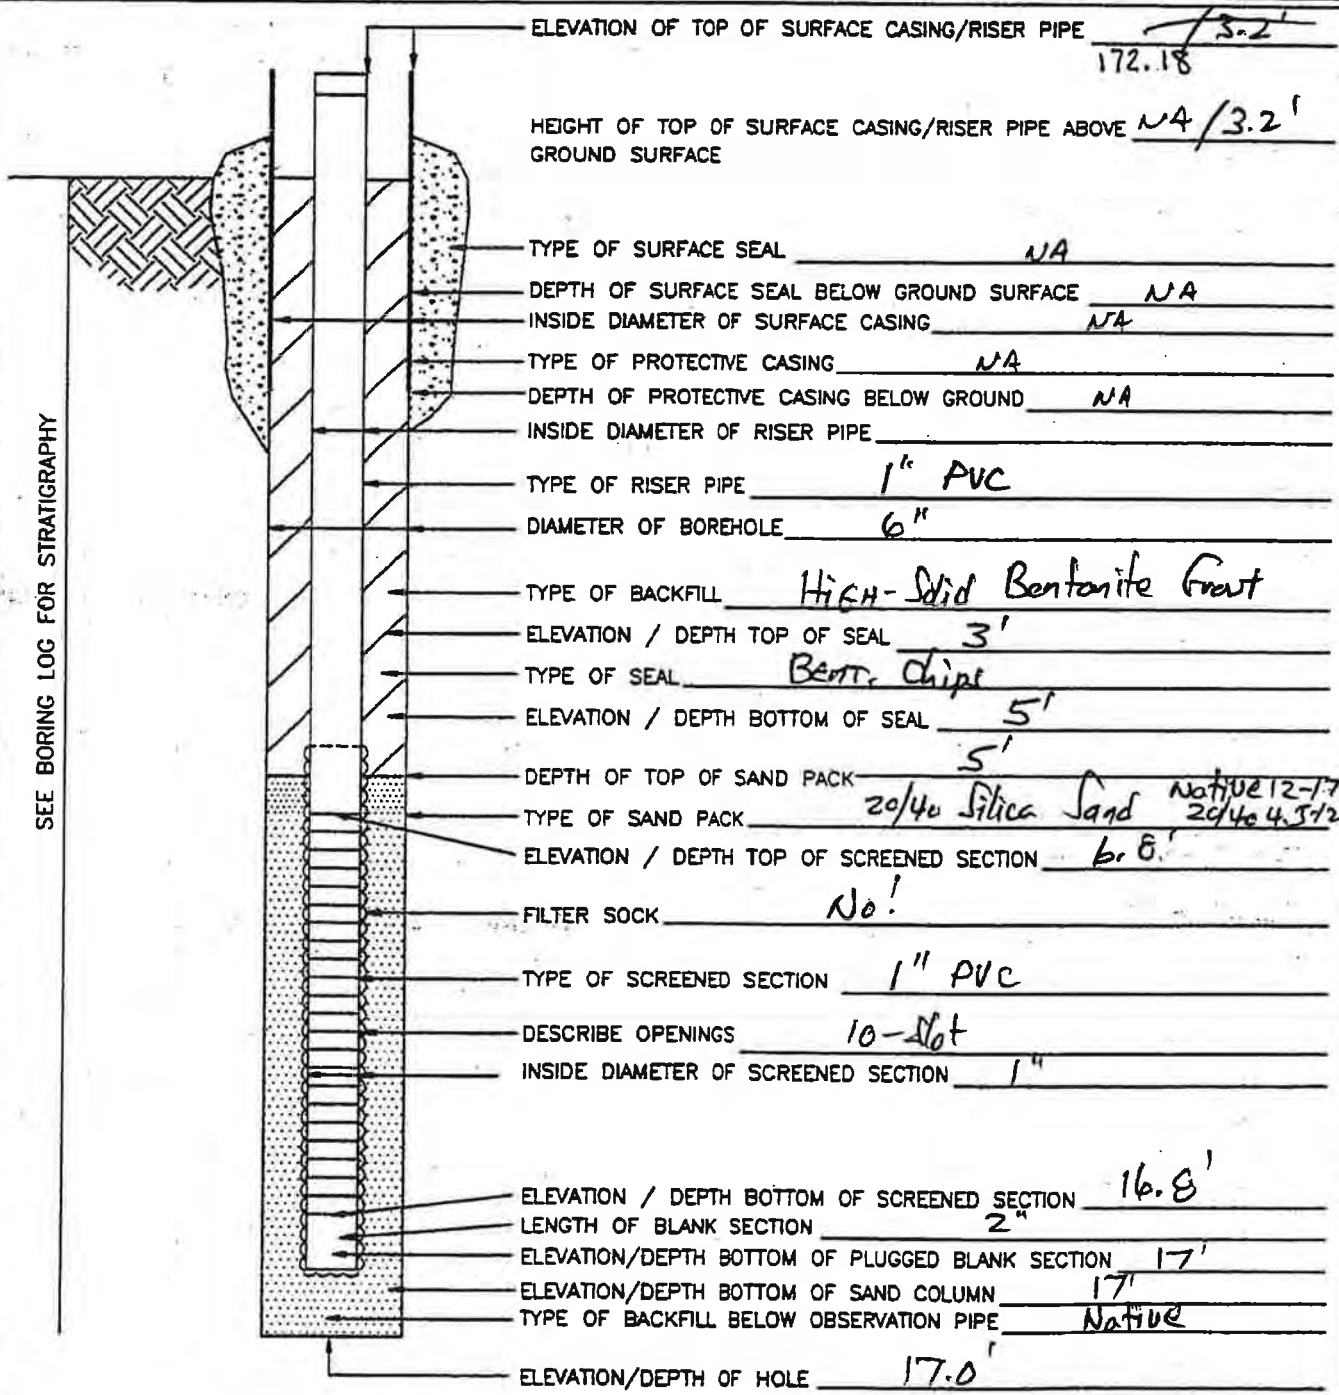 ELEVATION OF TOP OF SURFACE CASING/RISER PIPE /3.2'
172.18
HEIGHT OF TOP OF SURFACE CASING/RISER PIPE ABOVE NA/3.2'
GROUND SURFACE
TYPE OF SURFACE SEAL NA
DEPTH OF SURFACE SEAL BELOW GROUND SURFACE NA
INSIDE DIAMETER OF SURFACE CASING NA
TYPE OF PROTECTIVE CASING NA
DEPTH OF PROTECTIVE CASING BELOW GROUND NA
INSIDE DIAMETER OF RISER PIPE
TYPE OF RISER PIPE 1" PVC
DIAMETER OF BOREHOLE 6"
TYPE OF BACKFILL HIGH-Solid Bentonite Grout
ELEVATION / DEPTH TOP OF SEAL 3'
TYPE OF SEAL Bent. Chips
ELEVATION / DEPTH BOTTOM OF SEAL 5'
DEPTH OF TOP OF SAND PACK 5'
Native 12-17
TYPE OF SAND PACK 20/40 Silica Sand 20/40 4.5-12
ELEVATION / DEPTH TOP OF SCREENED SECTION 6.8'
FILTER SOCK No!
TYPE OF SCREENED SECTION 1" PVC
DESCRIBE OPENINGS 10-Slot
INSIDE DIAMETER OF SCREENED SECTION 1"
ELEVATION / DEPTH BOTTOM OF SCREENED SECTION 16.8'
LENGTH OF BLANK SECTION 2"
ELEVATION/DEPTH BOTTOM OF PLUGGED BLANK SECTION 17'
ELEVATION/DEPTH BOTTOM OF SAND COLUMN 17'
TYPE OF BACKFILL BELOW OBSERVATION PIPE Native
ELEVATION/DEPTH OF HOLE 17.0'
SEE BORING LOG FOR STRATIGRAPHY